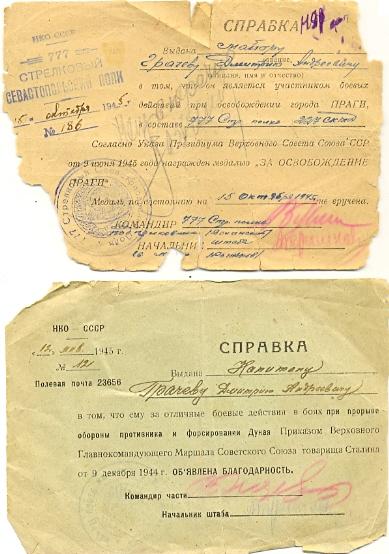 НКО — СССР
777
СТРЕЛКОВЫЙ
СЕВАСТОПОЛЬСКИЙ ПОЛК
15 октября 1945
№ 186
СПРАВКА
Выдана майору
Грачеву Дмитрию Андреевичу
(фамилия, имя и отчество)
в том, что он является участником боевых
действий при освобождении города ПРАГИ,
в составе 777 Стр. полка
Согласно Указа Президиума Верховного Совета Союза ССР
от 9 июня 1945 года награжден медалью „ЗА ОСВОБОЖДЕНИЕ
ПРАГИ"
Медаль по состоянию на 15 октября 1945 вручена.
КОМАНДИР 777 Стр. полка
НАЧАЛЬНИК штаба
НКО — СССР
12 янв. 1945 г.
№ 121
Полевая почта 23656
СПРАВКА
Выдана Капитану
Грачеву Дмитрию Андреевичу
в том, что ему за отличные боевые действия в боях при прорыве
обороны противника и форсировании Дуная Приказом Верховного
Главнокомандующего Маршала Советского Союза товарища Сталина
от 9 декабря 1944 г. ОБ'ЯВЛЕНА БЛАГОДАРНОСТЬ.
Командир части
Начальник штаба